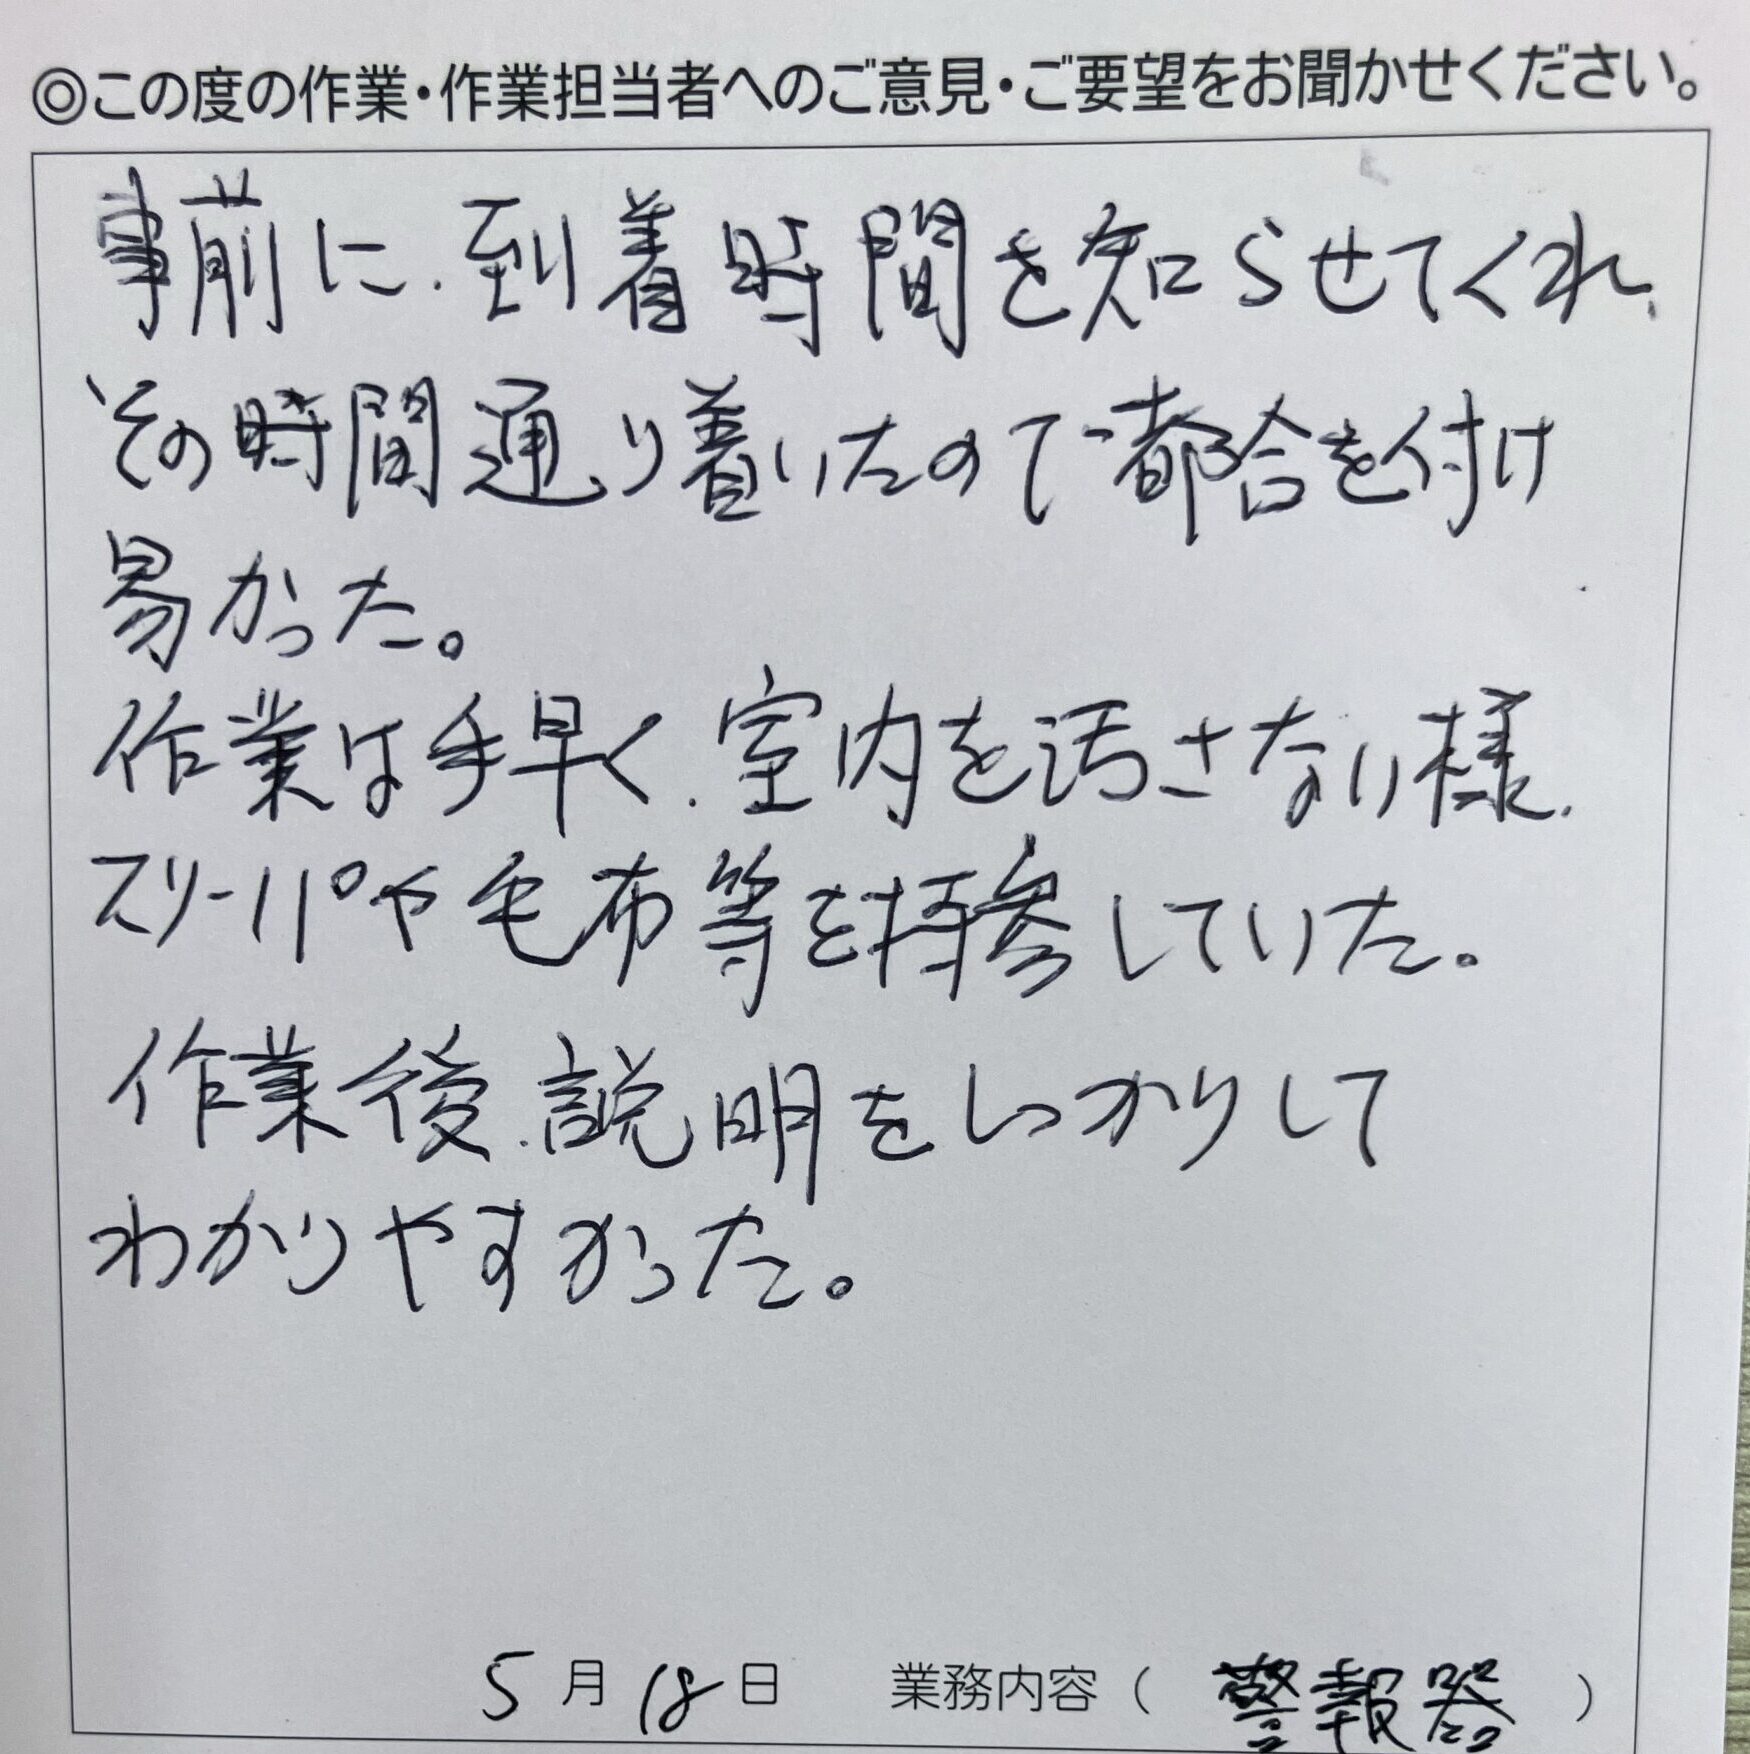 ◎この度の作業・作業担当者へのご意見・ご要望をお聞かせください。
事前に、到着時間を知らせてくれ、
その時間通り着いたので都合を付け
易かった。
作業は手早く、室内を汚さない様、
スリーパや毛布等を持参していた。
作業後、説明をしっかりして
わかりやすかった。
5月18日 業務内容（警報器）